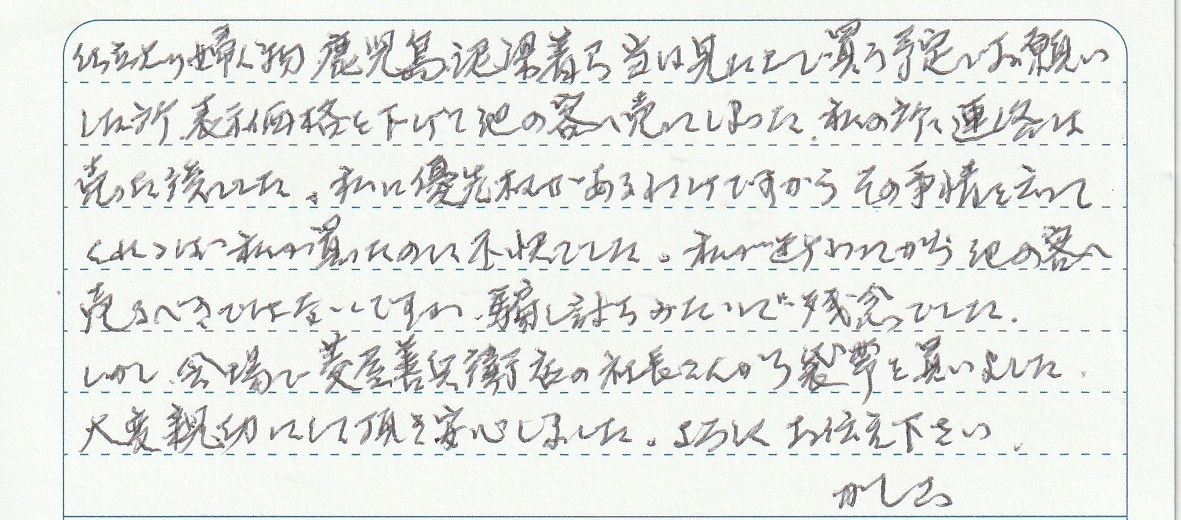 仕立上り婦人物 鹿児島泥染着尺 当は見た上で買う予定でお願い
した所 表示価格を下げて他の客へ売ってしまった。私の所に連絡は
売った後でした。私に優先権があるわけですから その事情を云って
くれれば 私が買ったのに 不快でした。私が断わってから 他の客へ
売るべきではないですか 騙し討ちみたいで 残念でした。
しかし 会場で 菱屋善兵衛店の社長さんから袋帯を買いました。
大変親切にして頂き安心しました。よろしくお伝え下さい。
かしこ